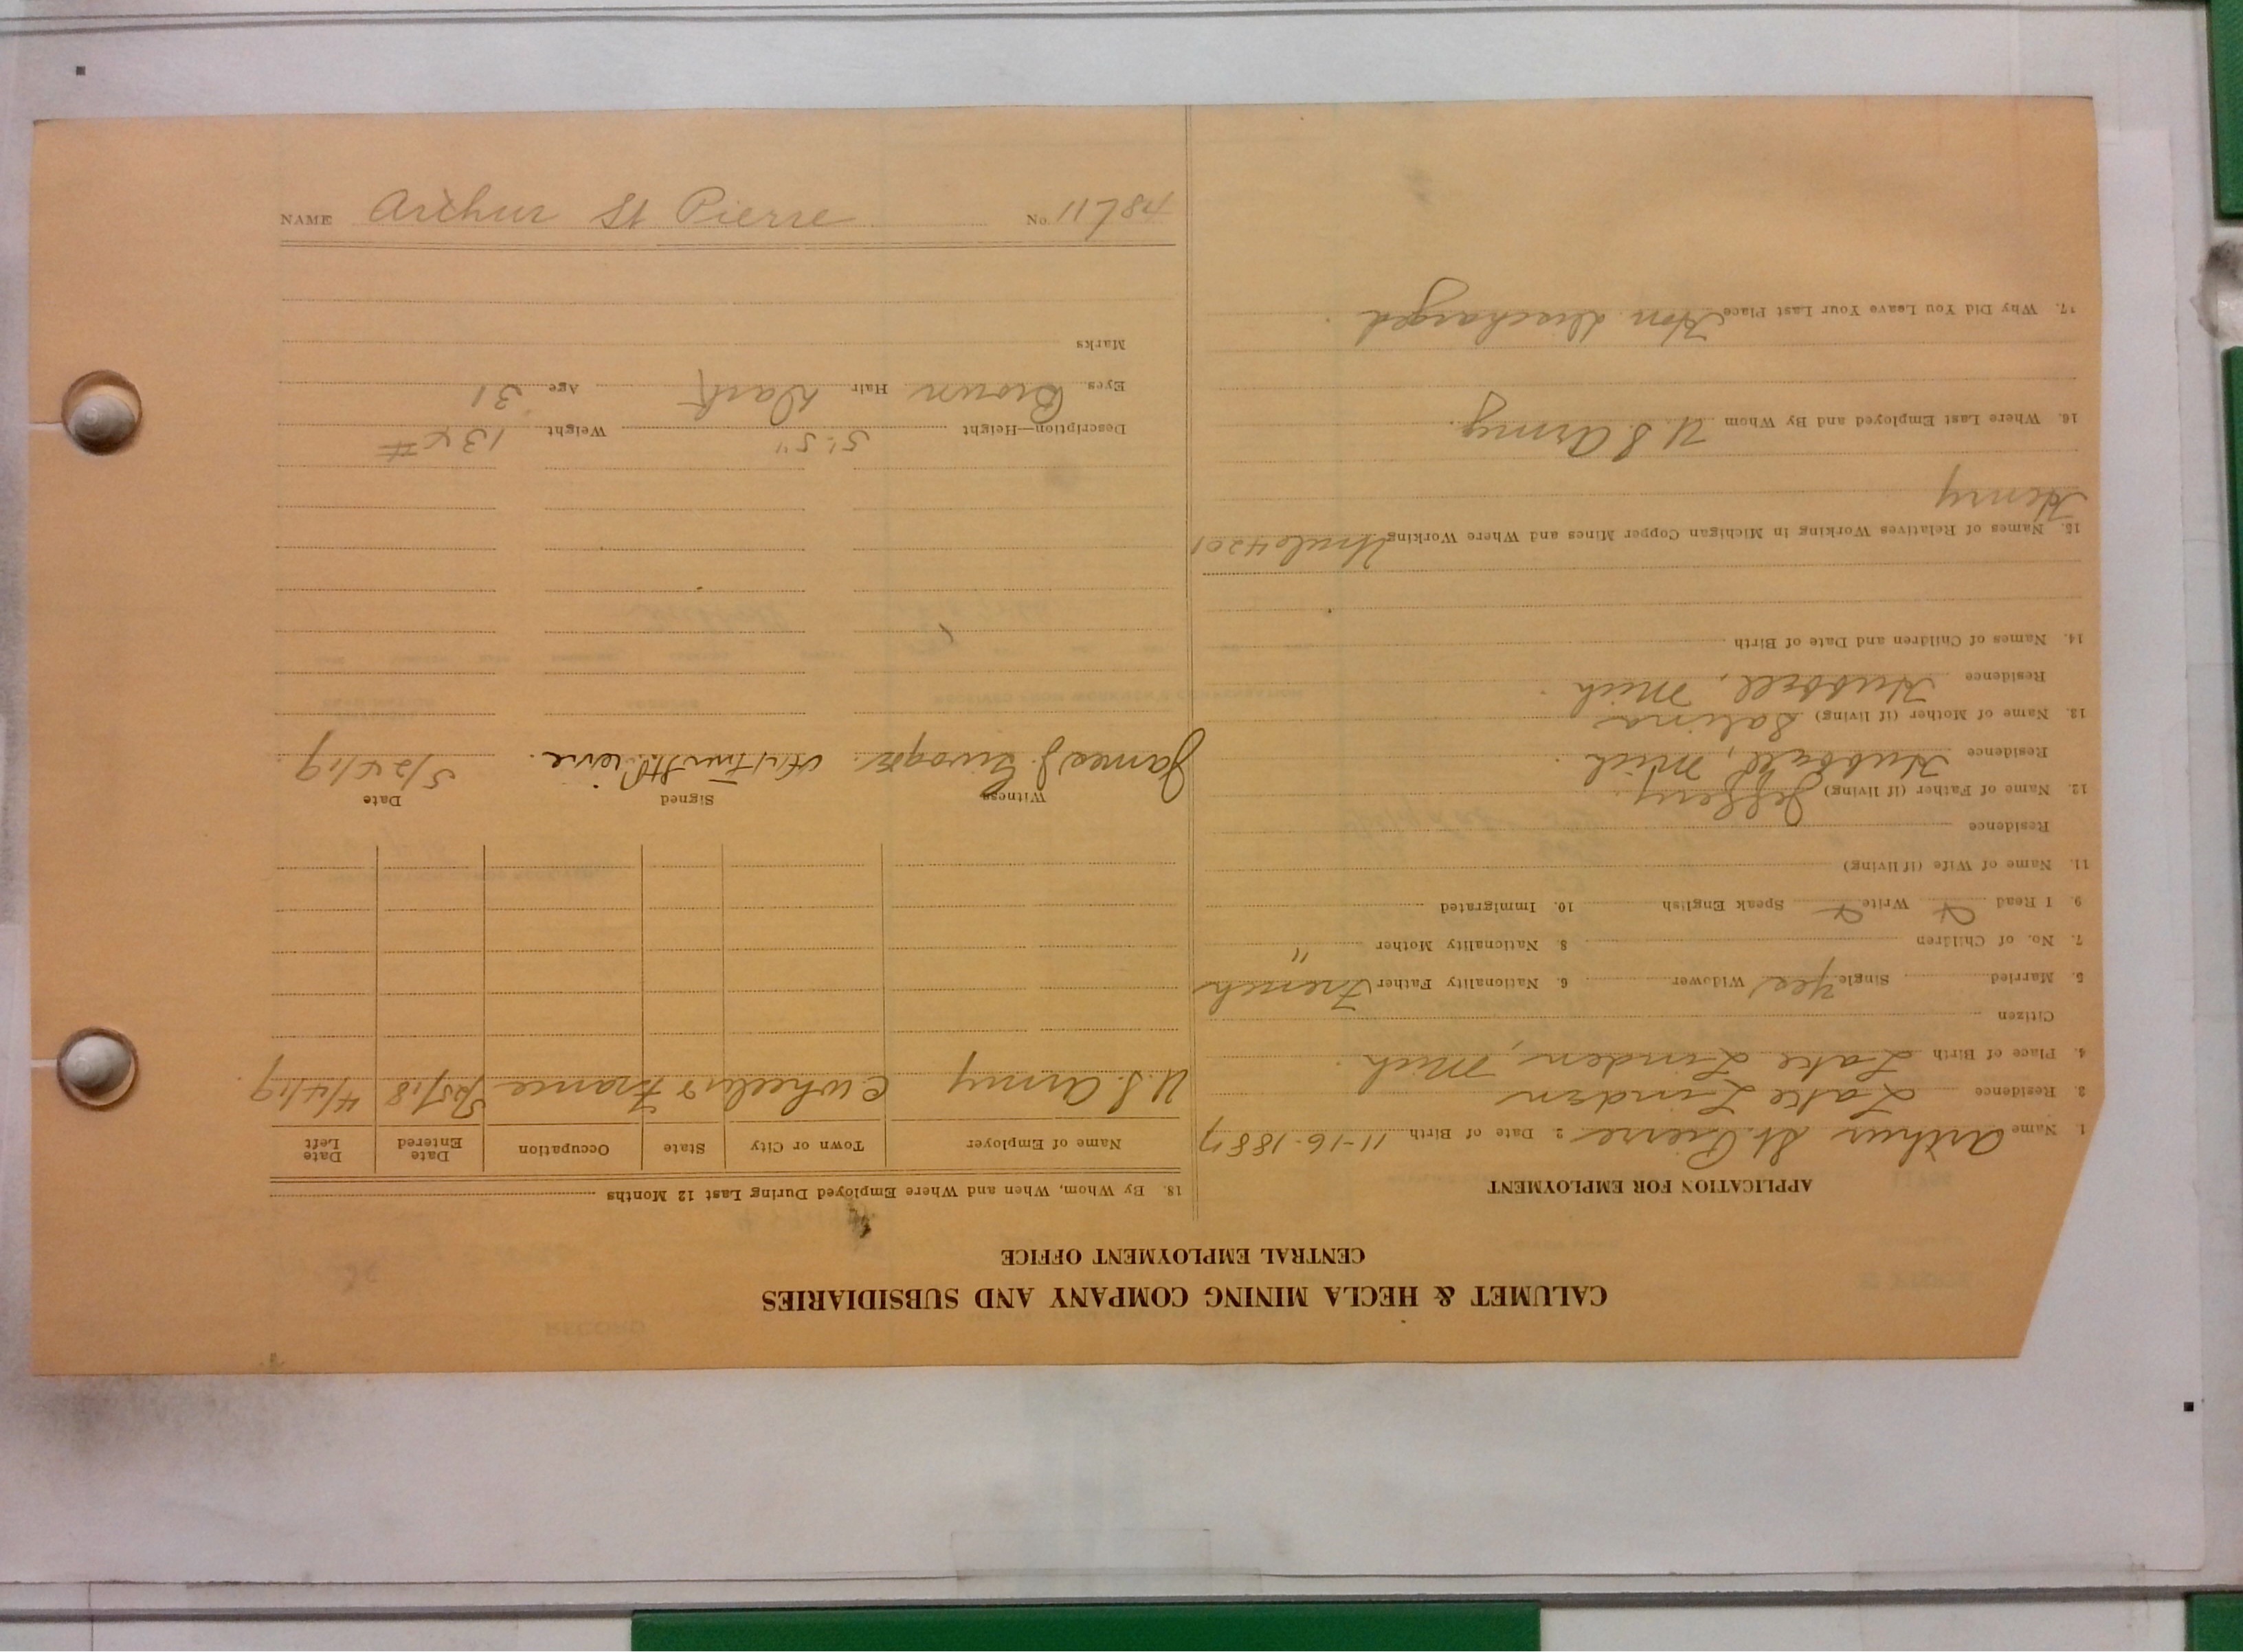 CALUMET & HECLA MINING COMPANY AND SUBSIDIARIES
CENTRAL EMPLOYMENT OFFICE
APPLICATION FOR EMPLOYMENT
1. Name Arthur St. Pierre 2 Date of Birth 11-16-1887
3. Residence Lake Linden
4. Place of Birth Lake Linden, Mich.
Citizen
5. Married Single Yes Widower 6. Nationality Father French
7. No. of Children 8. Nationality Mother "
9. I Read Write Speak English 10. Immigrated
11. Name of Wife (if living)
Residence
12. Name of Father (if living) Jeffery.
Residence Hubbell, Mich.
13. Name of Mother (if living) Salina
Residence Hubbell, Mich.
14. Names of Children and Date of Birth
15. Names of Relatives Working in Michigan Copper Mines and Where Working Uncle 4201
Henry
16. Where Last Employed and By Whom U S Army.
17. Why Did You Leave Your Last Place Hon discharged.
18. By Whom, When and Where Employed During Last 12 Months
Name of Employer Town or City State Occupation Date Entered Date Left
U.S. Army France 5/25/18 4/4/19.
Witness Signed Date
James J. Arthur St. Pierre. 5/24/19
Description—Height 5' 5" Weight
Eyes Brown Hair Dark Age 31
Marks
NAME Arthur St Pierre No. 11784